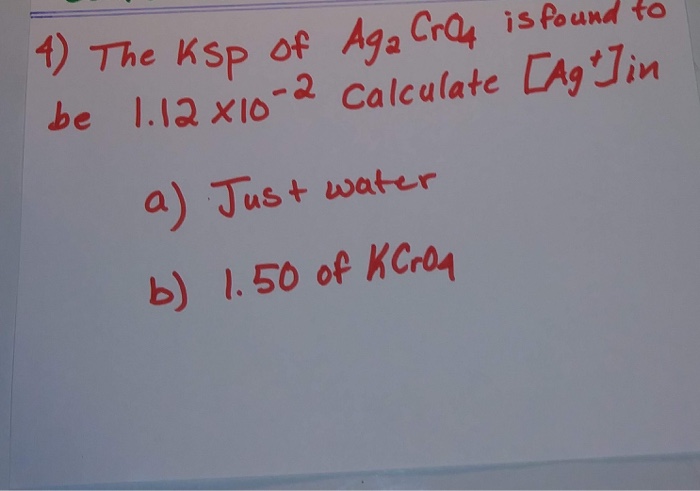 4) The Ksp of Ag₂CrO₄ is found to
be 1.12 x10⁻² Calculate [Ag⁺] in
a) Just water
b) 1.50 of KCrO₄